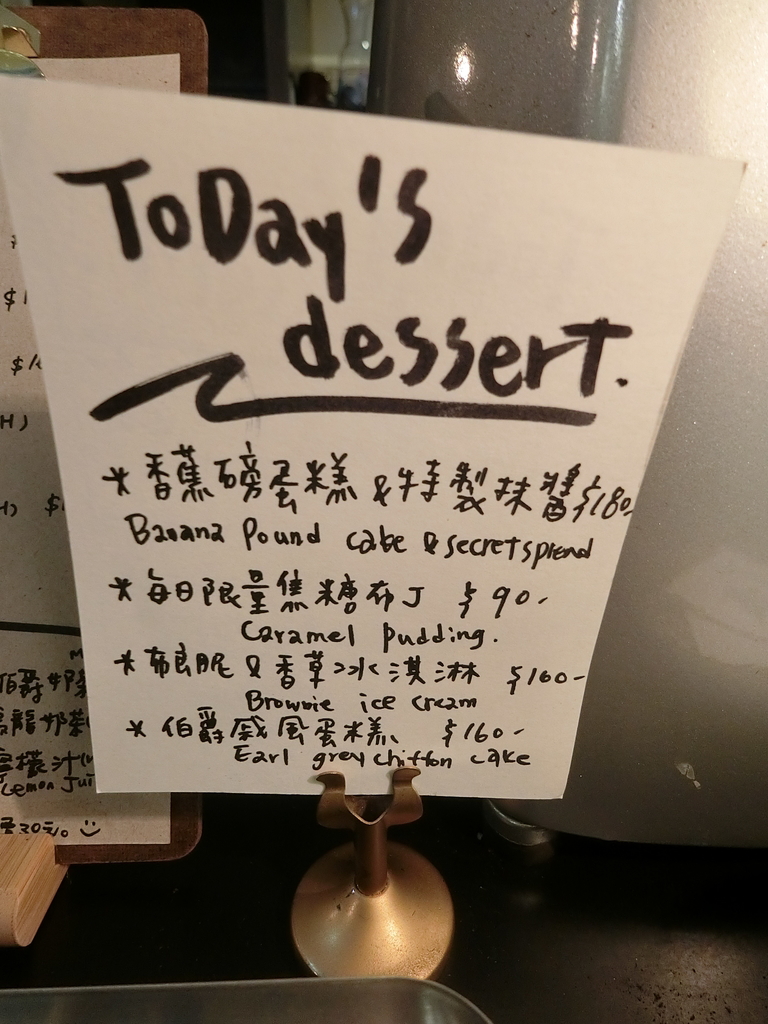 ToDay's
dessert.
* 香蕉磅蛋糕 & 特製抹醬 $180-
Banana Pound cake & secret spread
* 每日限量焦糖布丁 $90-
Caramel pudding.
* 布朗尼 & 香草冰淇淋 $160-
Brownie ice cream
* 伯爵戚風蛋糕 $160-
Earl grey chiffon cake
$1
$1
H)
H) $
伯爵奶茶
烏龍奶茶
檬汁
Lemon Jui
30元。